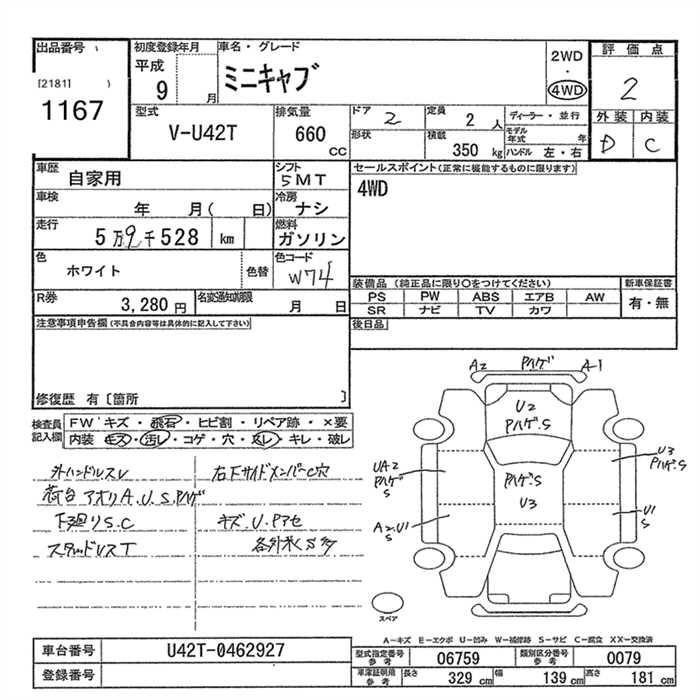 出品番号
[2181]
1167
初度登録年月
平成
9 月
車名・グレード
ミニキャブ
2WD
・
4WD
評価点
2
外装 内装
D C
型式
V-U42T
排気量
660
CC
ドア 2
定員 2 人
ディーラー・並行
形状
積載 350 kg
モデル年式 年
ハンドル 左・右
車歴
自家用
シフト
5MT
車検
年 月( 日)
冷房
ナシ
走行
5万9千528 km
燃料
ガソリン
色
ホワイト
色替
色コード
W74
R券
3,280円
名変通知期限
月 日
セールスポイント(正常に機能するものに限ります)
4WD
装備品 (純正品に限り○をつけてください)
PS PW ABS エアB AW
SR ナビ TV カワ
新車保証書
有・無
後日品
注意事項申告欄(不具合内容等は具体的に記入して下さい)
修復歴 有〔箇所 〕
検査員
記入欄
FW キズ・飛石・ヒビ割・リペア跡・×要
内装 キズ・汚レ・コゲ・穴・凹レ・キレ・破レ
外ハンドルスレ
右下サイドメンバーC穴
荷台アオリA.U.Sハゲ
下廻りS.C
キズ.U.Pアセ
スタッドレスT
各外板S多
A2 Pハゲ A-1
U2
Pハゲ.S
Pハゲ.S
U3
UA2
Pハゲ
S
U3
Pハゲ.S
A2.U1
S
U1
S
スペア
A-キズ E-エクボ U-凹み W-補修跡 S-サビ C-腐食 XX-交換済
車台番号
U42T-0462927
登録番号
型式指定番号
参考
06759
類別区分番号
参考
0079
車庫証明用
参考
長さ 329 cm
幅 139 cm
高さ 181 cm